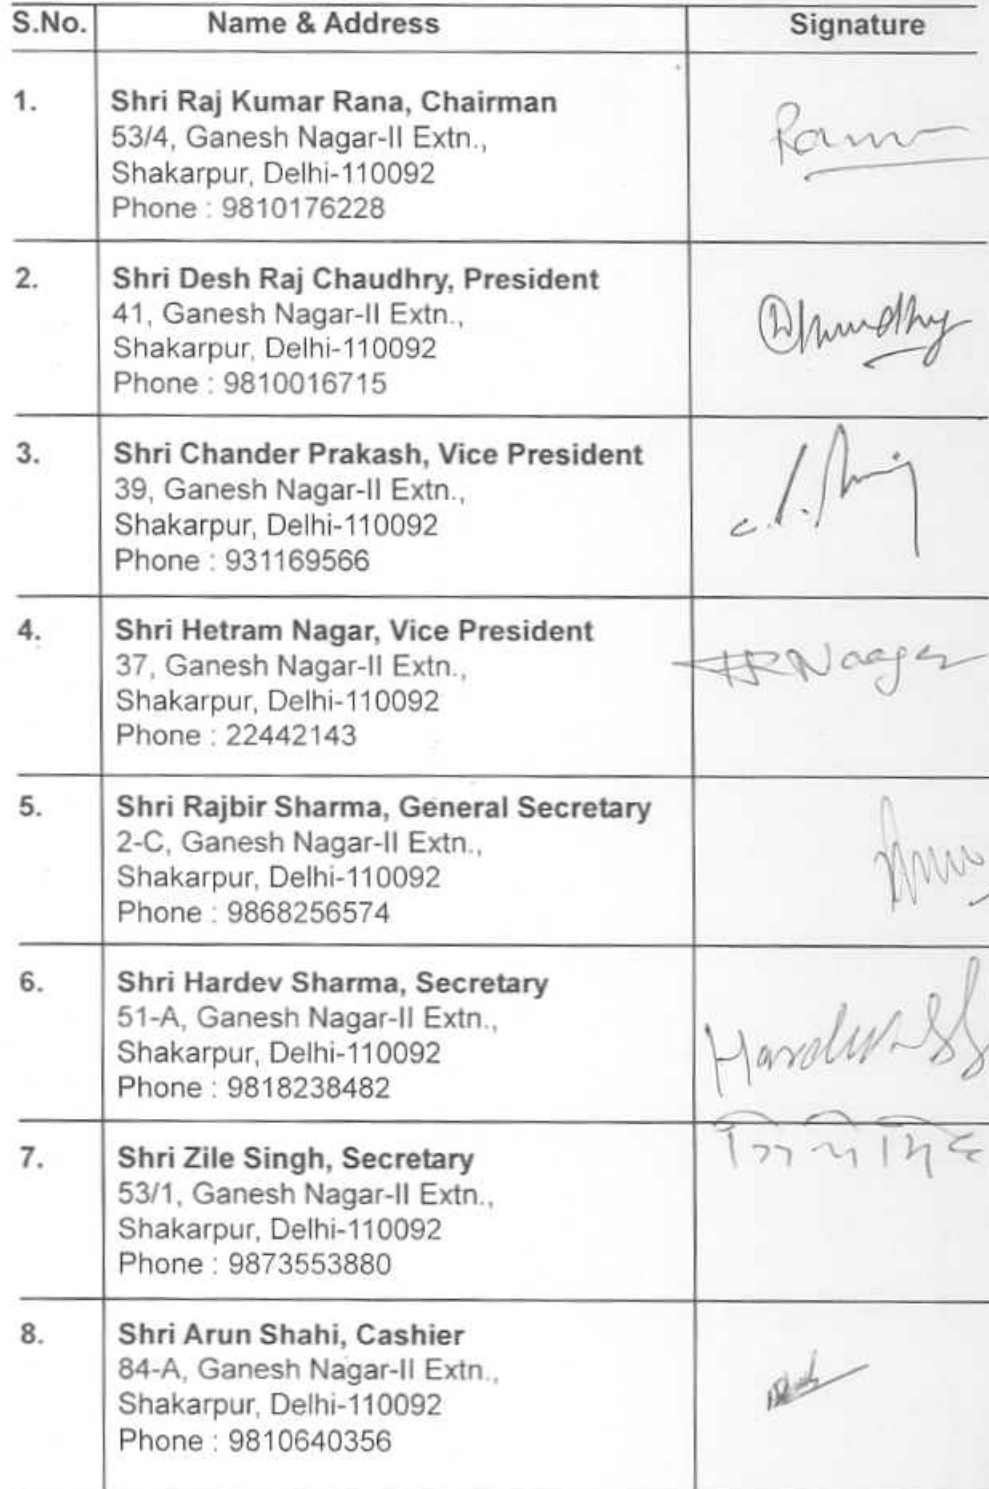 S.No. Name & Address Signature
1. Shri Raj Kumar Rana, Chairman
53/4, Ganesh Nagar-II Extn.,
Shakarpur, Delhi-110092
Phone : 9810176228
2. Shri Desh Raj Chaudhry, President
41, Ganesh Nagar-II Extn.,
Shakarpur, Delhi-110092
Phone : 9810016715
3. Shri Chander Prakash, Vice President
39, Ganesh Nagar-II Extn.,
Shakarpur, Delhi-110092
Phone : 931169566
4. Shri Hetram Nagar, Vice President
37, Ganesh Nagar-II Extn., HRNaagar
Shakarpur, Delhi-110092
Phone : 22442143
5. Shri Rajbir Sharma, General Secretary
2-C, Ganesh Nagar-II Extn.,
Shakarpur, Delhi-110092
Phone : 9868256574
6. Shri Hardev Sharma, Secretary
51-A, Ganesh Nagar-II Extn.,
Shakarpur, Delhi-110092
Phone : 9818238482
7. Shri Zile Singh, Secretary
53/1, Ganesh Nagar-II Extn.,
Shakarpur, Delhi-110092
Phone : 9873553880
8. Shri Arun Shahi, Cashier
84-A, Ganesh Nagar-II Extn.,
Shakarpur, Delhi-110092
Phone : 9810640356